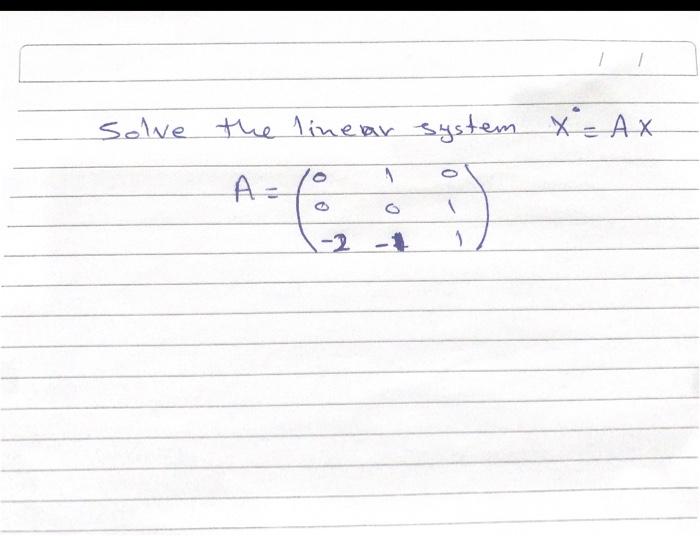 / /
Solve the linear system Ẋ = A X
A = ( 0 1 0
0 0 1
-2 -1 1 )